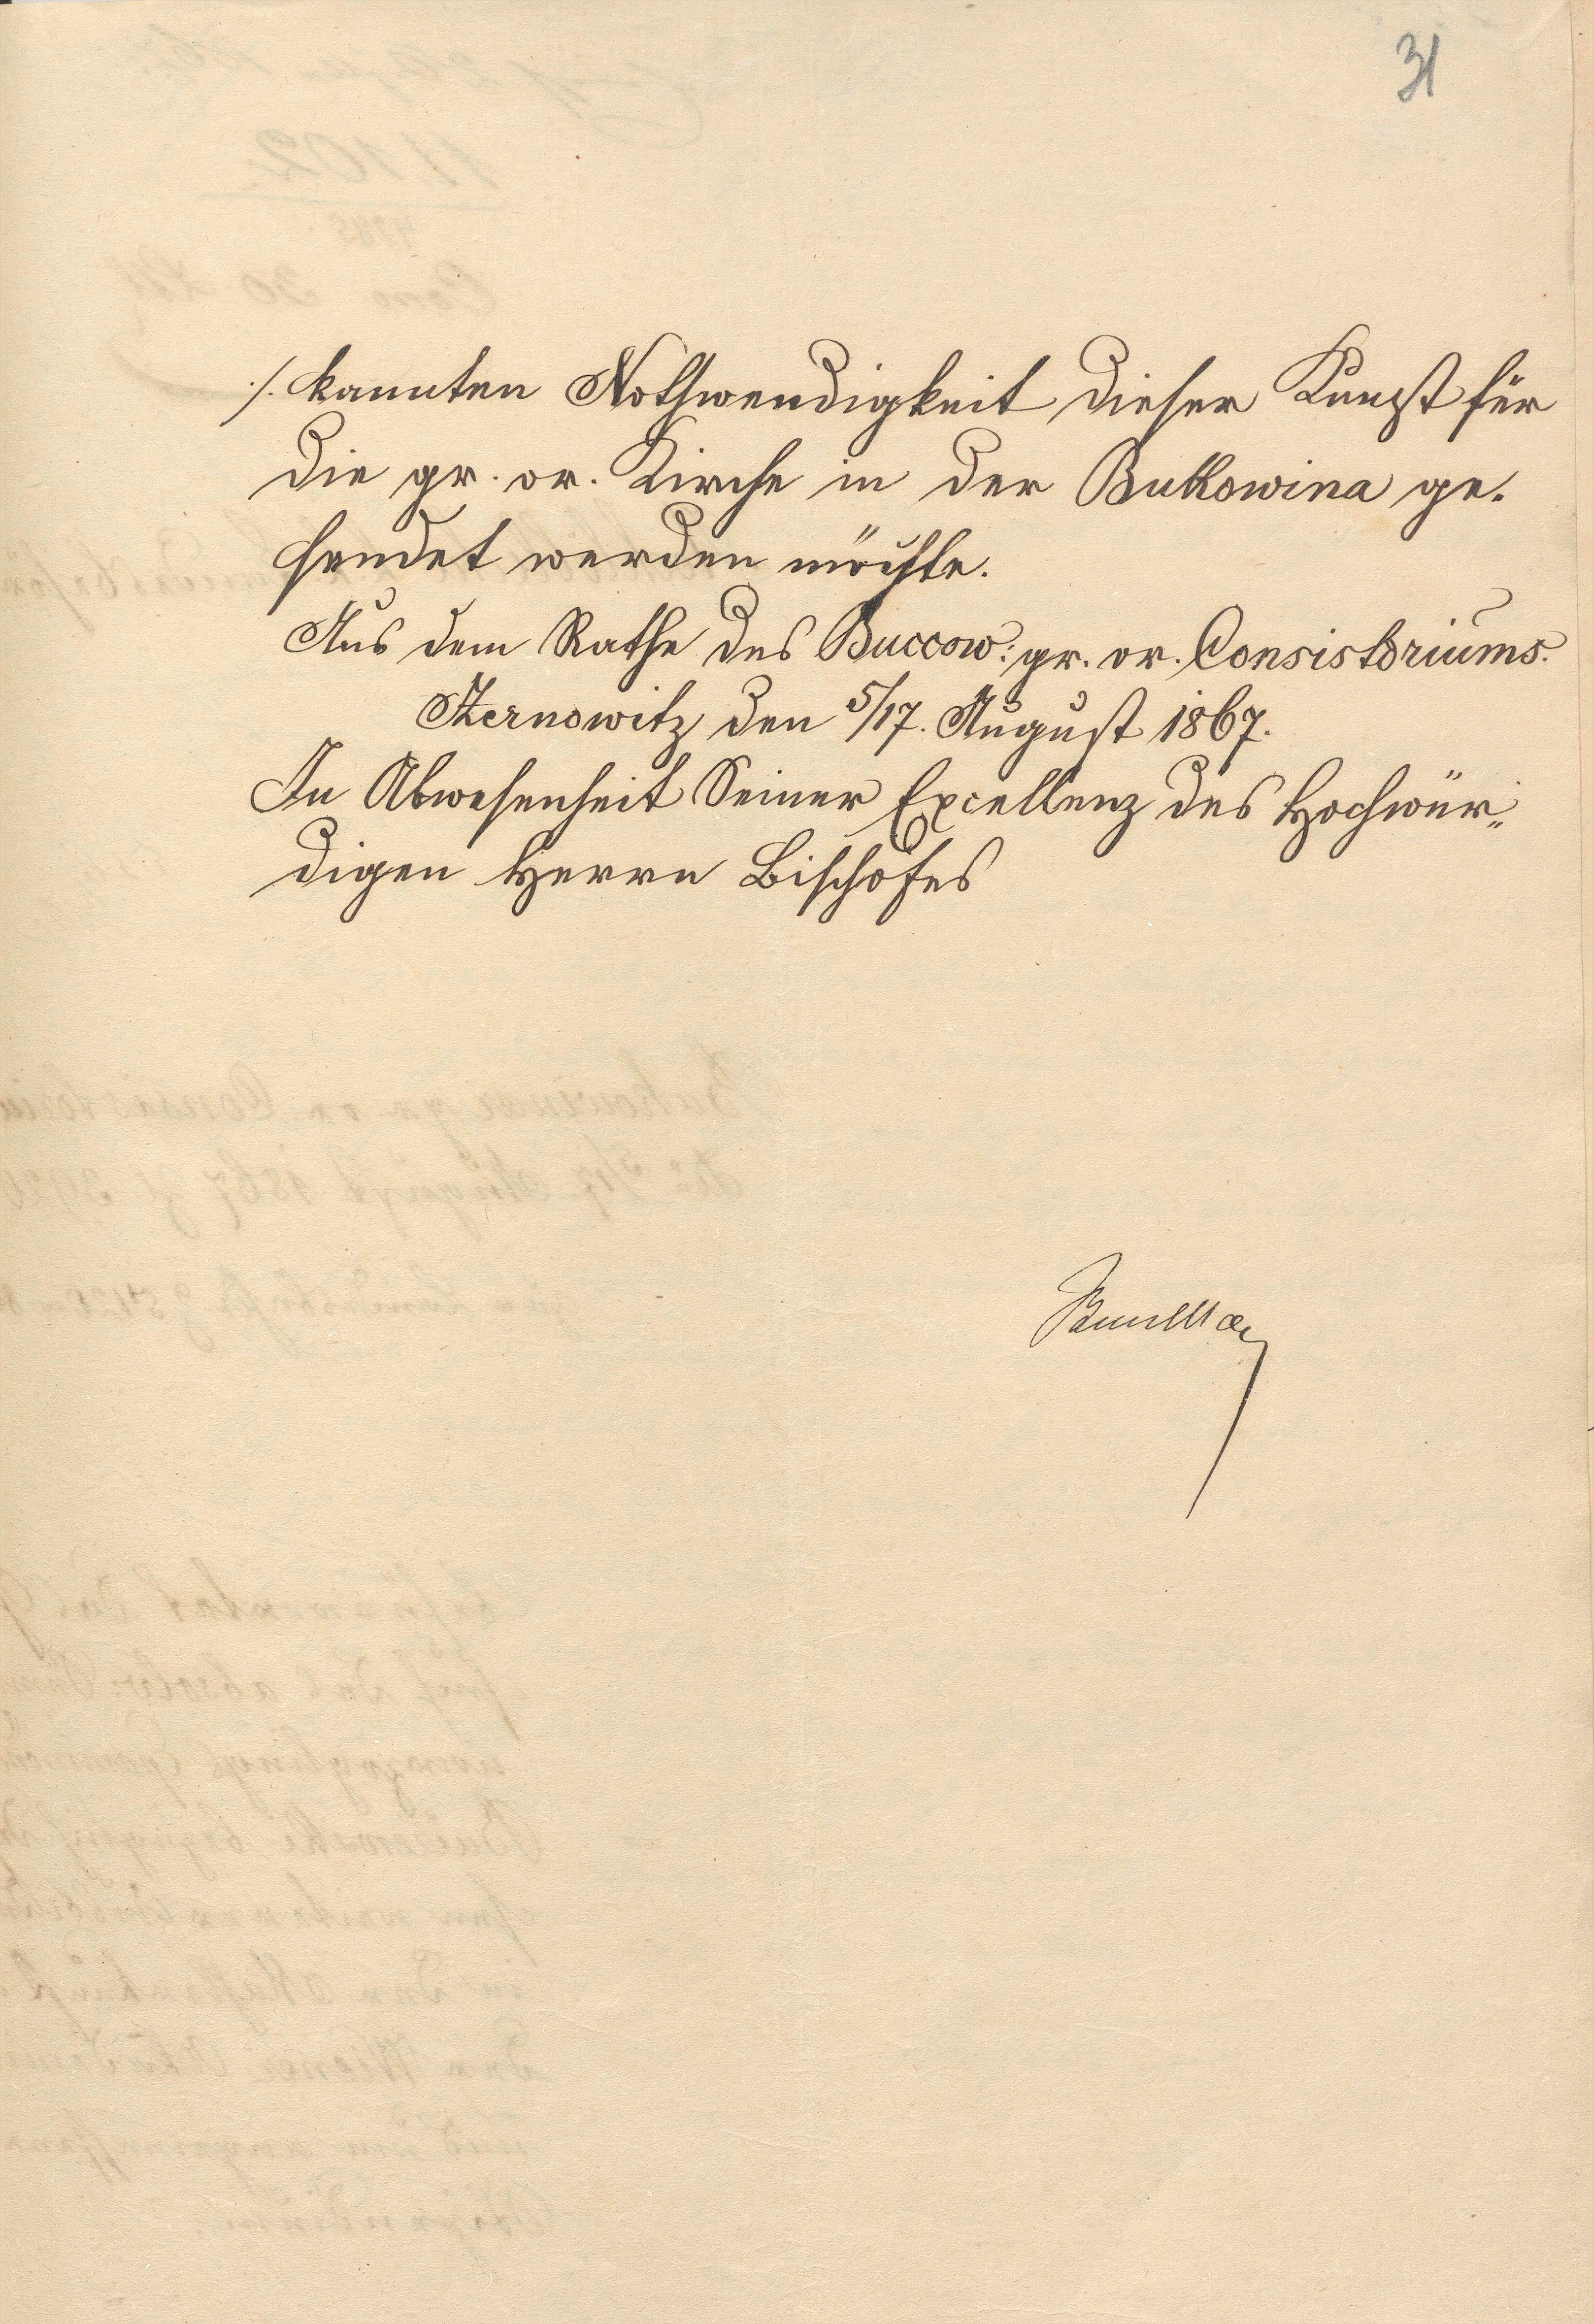 31
./. kannten Nothwendigkeit dieser Kunst für
die gr. or. Kirche in der Bukowina ge-
sendet werden möchte.
Aus dem Rathe des Buccow: gr. or. Consistoriums.
Czernowitz den 5/17. August 1867.
In Abwesenheit Seiner Excellenz des Hochwür„
digen Herrn Bischofes